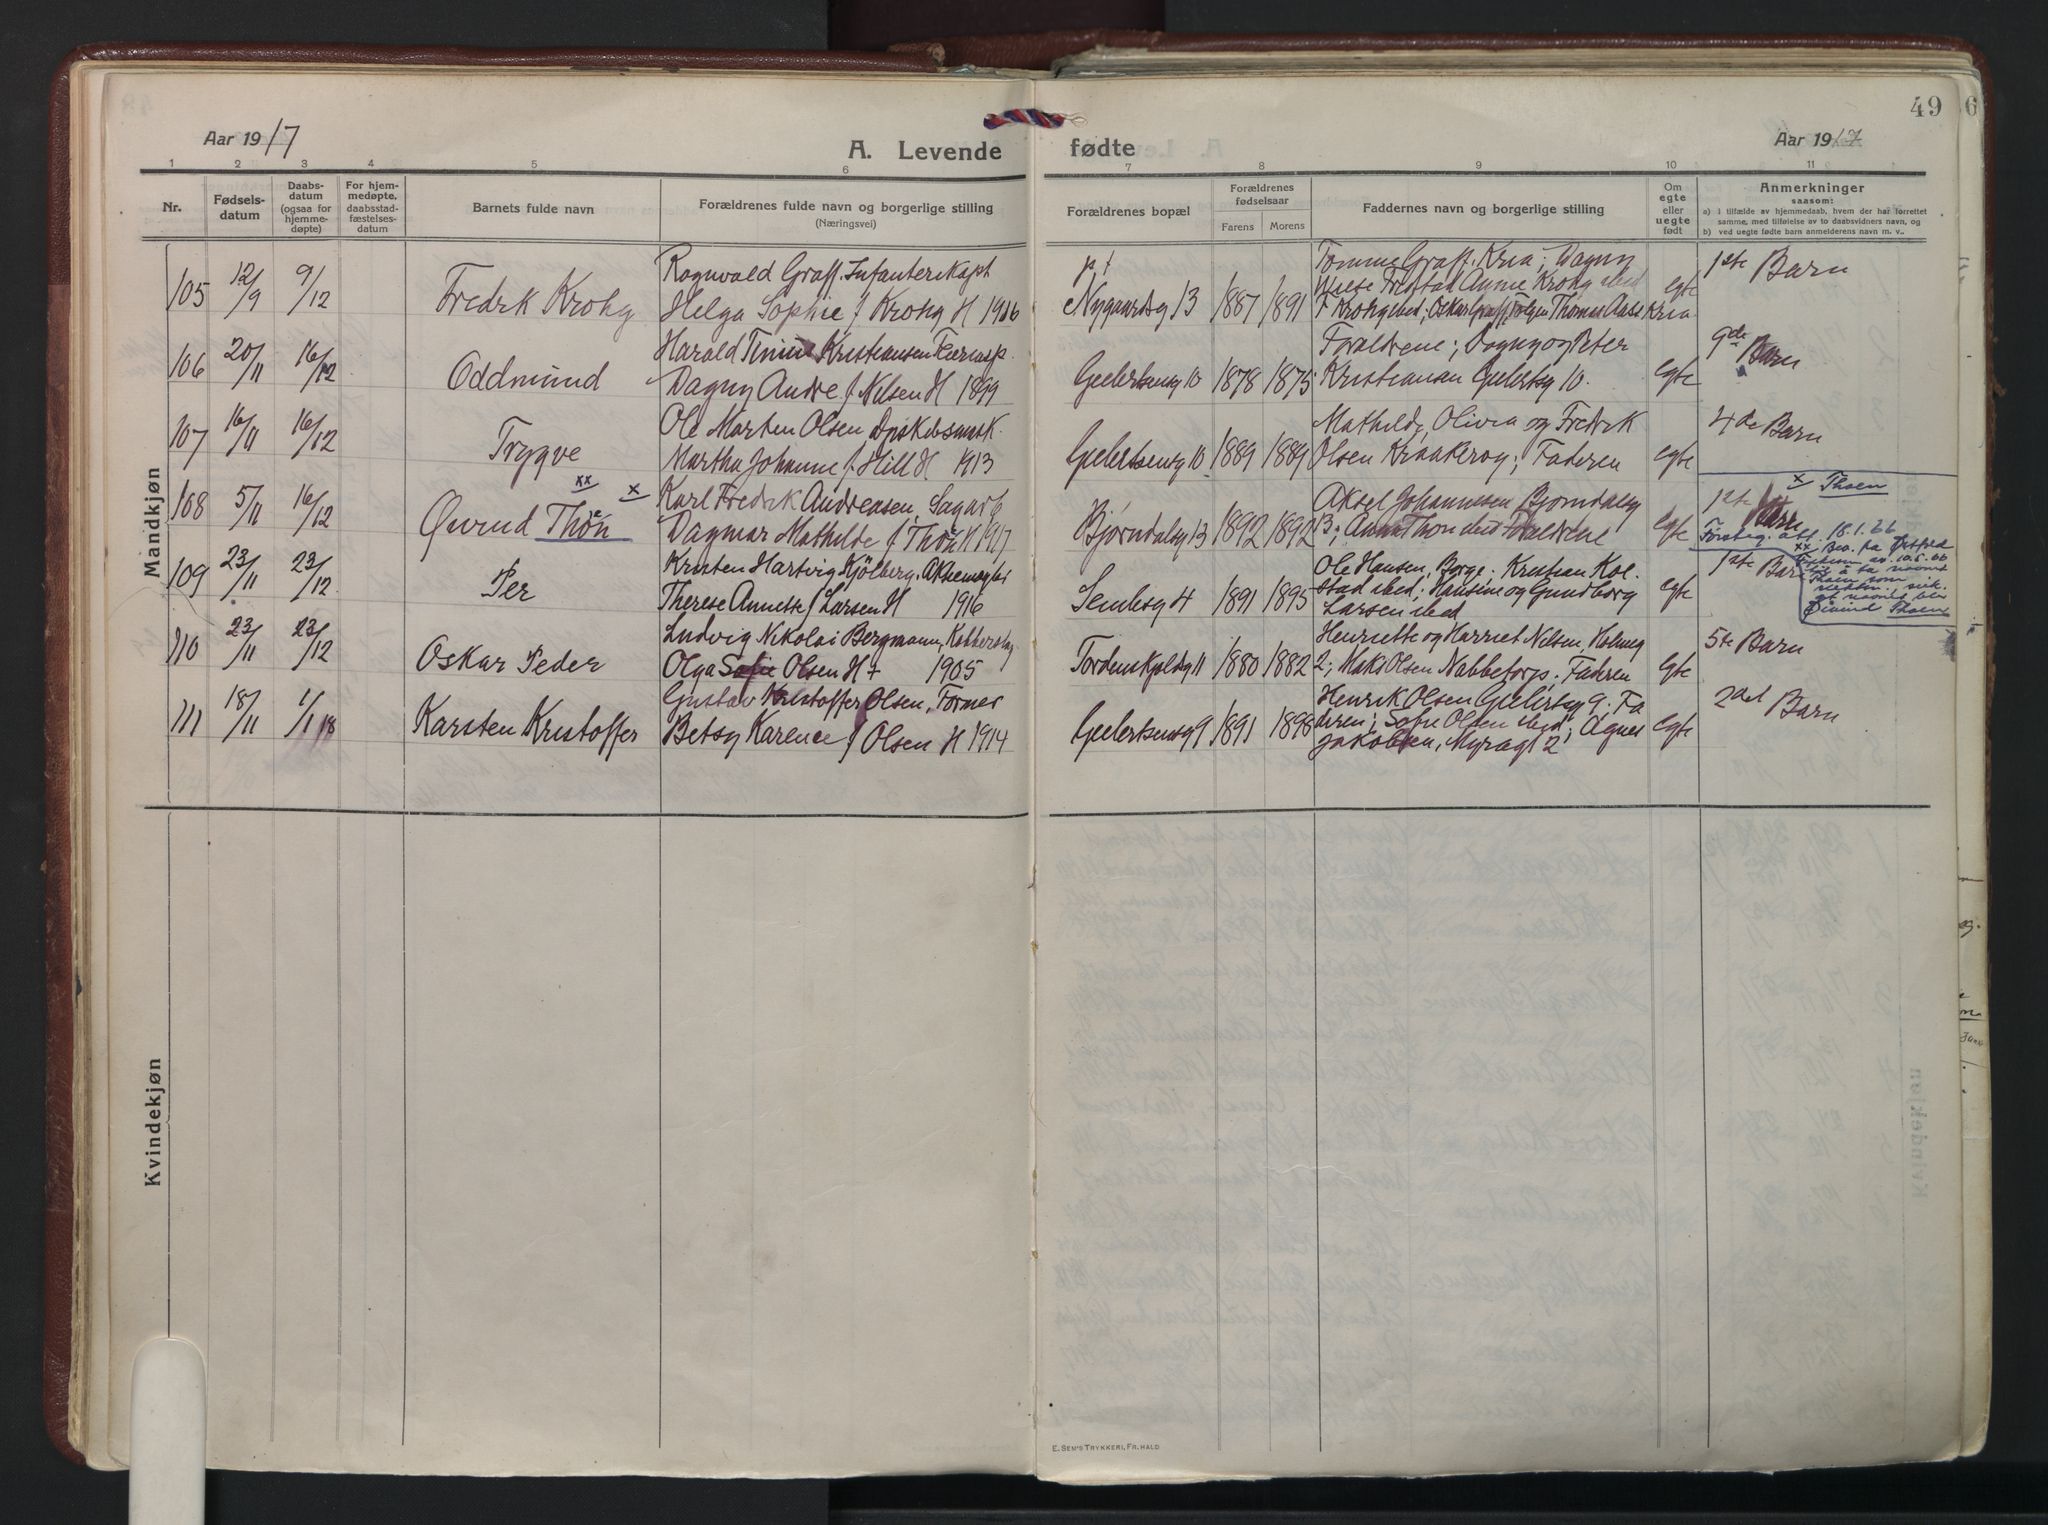 49 6
Aar 1917
A. Levende fødte
Aar 1917
1 2 3 4 5 6 7 8 9 10 11
Nr.
Fødsels-
datum
Daabs-
datum
(ogsaa for
hjemme-
døpte)
For hjem-
medøpte,
daabsstad-
fæstelses-
datum
Barnets fulde navn
Forældrenes fulde navn og borgerlige stilling
(Næringsvei)
Forældrenes bopæl
Forældrenes
fødselsaar
Farens Morens
Faddernes navn og borgerlige stilling
Om
egte
eller
uegte
født
Anmerkninger
saasom:
a) i tilfælde av hjemmedaab, hvem der har forrettet
samme, med tilføielse av to daabsvidners navn, og
b) ved uegte fødte barn anmelderens navn m. v..
Mandkjøn
105 12/9 9/12 Fredrk Krohg
Ragnvald Graff. Infanterikapt
Helga Sophie f Krohg H 1916
pt
Nygaardsg 13 1887 1891
Tomme Graff. Kria; Dagny
Fredstad Anne Krohg sted
F Krohg sted; Oskar Graff, Thomas Aass Kria
egte
1ste Barn
106 20/11 16/12 Oddmund
Harald Tinius Kristiansen
Dagny Andre f Nilsen H 1899
Geelertsensg 10 1878 1875
Foraldrene; Dagny og Peter
Kristiansen Geelertsg 10.
egte
9de Barn
107 16/11 16/12 Trygve
Ole Marten Olsen
Martha Johanne f. Hill H 1913
Geelertsensg 10 1889 1889
Mathilde, Olivia og Fredrk
Olsen Kraakerøy; Faderen
egte
4de Barn
108 5/11 16/12 Øivind Thoen xx x
Karl Fredrk Andreasen, Sagarb
Dagmar Mathilde f Thoen H 1917
Bjørndalsg 13 1892 1892
Aksel Johannesen Bjørndalsg
13; Anna Thon sted Foraldrene
egte
1ste Barn
x Thoen
18.1.66
xx Bev. fra Østfold
Thoen som
Øivind Thoen
109 23/11 23/12 Per
Kristen Hartvig Kjölberg,
Therese Annette f Larsen H 1916
Sembsg 4 1891 1895
Ole Hansen, Borge. Kristian Kol-
stad sted; Hansine og Gundborg
Larsen sted
egte
1ste Barn
110 23/11 23/12 Oskar Peder
Ludvig Nikolai Bergmann,
Olga Sofie Olsen H + 1905
Tordenskjoldsg 11 1880 1882
Henriette og Harriet Nilsen, Holmeg
2; Maks Olsen Nabbetorp. Faderen
egte
5te Barn
111 18/11 1/1 18 Karsten Kristoffer
Gustav Kristoffer Olsen, Former
Betsy Karence f Olsen H 1914
Geelertsensg 9 1891 1898
Henrik Olsen Geelertsg 9. Fa
deren; Sofie Olsen sted; Agnes
Jakobsen, Myragt 2
egte
2det Barn
Kvindekjøn
E. Sem's Trykkeri, Fr.hald